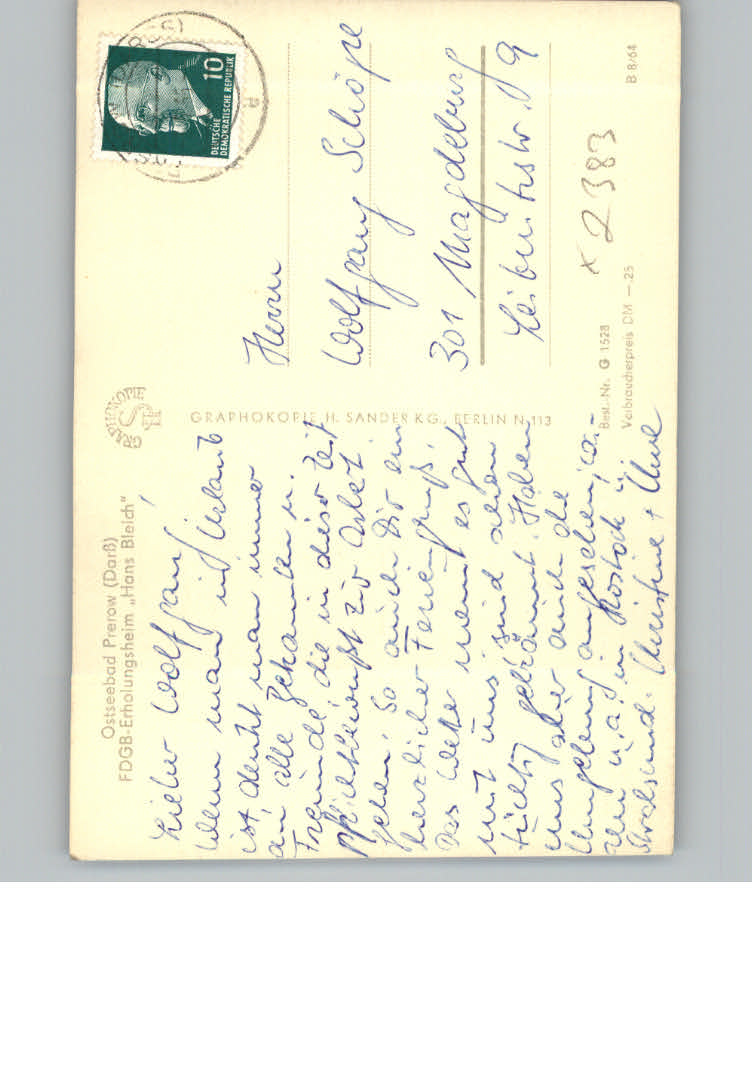 Ostseebad Prerow (Darß)
FDGB-Erholungsheim „Hans Bleich"
Lieber Wolfgang!
Wenn man in Urlaub
ist denkt man immer
an alle Bekannten u.
Freunde die in dieser Zeit
pflichtbewußt zur Arbeit
gehen. So auch Dir ein
herzlicher Feriengruß.
Das Wetter meint es gut
mit uns, sind schon
tüchtig gebräunt. Haben
uns aber auch die
Umgebung angesehen,
u.a. in Rostock u.
Stralsund. Christine + Uwe
GRAPHOKOPIE
GRAPHOKOPIE H. SANDER KG., BERLIN N 113
10
DEUTSCHE
DEMOKRATISCHE REPUBLIK
Herrn
Wolfgang Schöpe
301 Magdeburg
Leibnitzstr. 9
x 2383
Best.-Nr. G 1528
Verbraucherpreis DM —.25
B 8/64